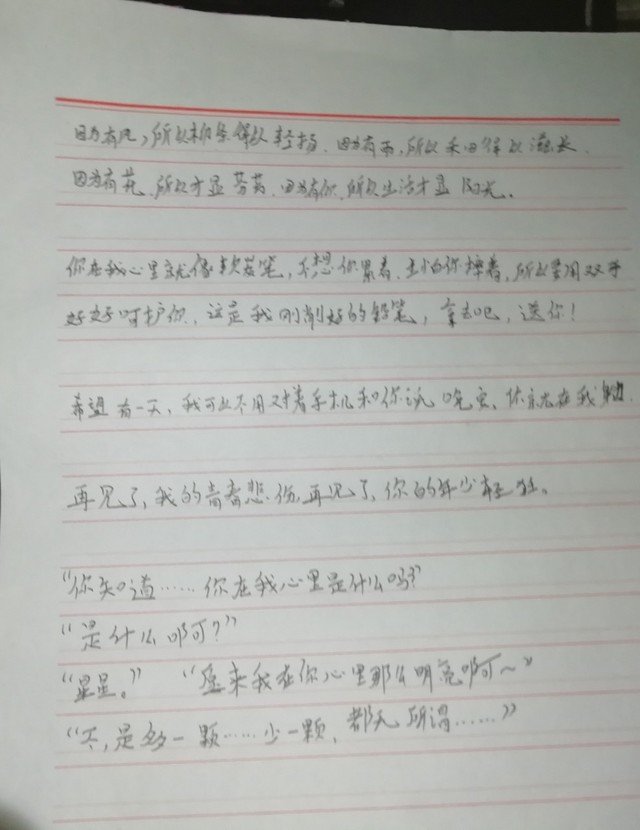 因为有风，所以柳条得以轻扬、因为有雨，所以禾田得以滋长、
因为有花、所以才显芬芳、因为有你、所以生活才显阳光。
你在我心里就像铅笔，不想你累着、生怕你摔着，所以要用双手
好好呵护你，这是我刚削好的铅笔，拿去吧，送你！
希望有一天，我可以不用对着手机和你说晚安、你就在我身边
再见了，我的青春悲伤再见了，你的年少轻狂。
“你知道……你在我心里是什么吗？”
“是什么啊？”
“星星。” “原来我在你心里那么明亮啊～”
“不，是多一颗……少一颗，都无所谓……”